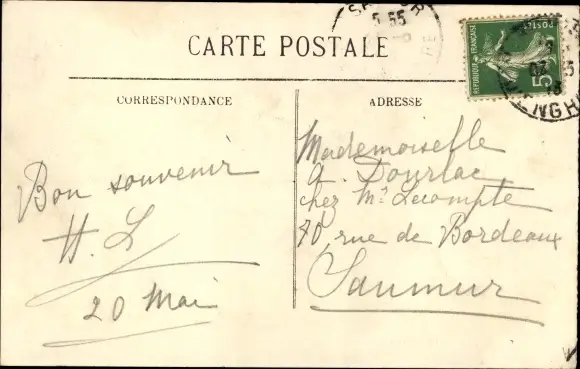 CARTE POSTALE
CORRESPONDANCE
Bon souvenir
H. L
20 Mai
ADRESSE
Mademoiselle
A. Dourlac
chez Mr Lecompte
70, rue de Bordeaux
Saumur
REPUBLIQUE FRANÇAISE
POSTES
5
5 55
ENGHI